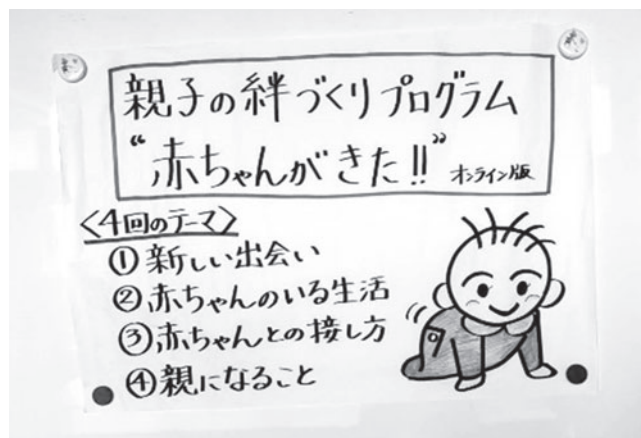 親子の絆づくりプログラム
“赤ちゃんがきた!!” オンライン版
<4回のテーマ>
①新しい出会い
②赤ちゃんのいる生活
③赤ちゃんとの接し方
④親になること